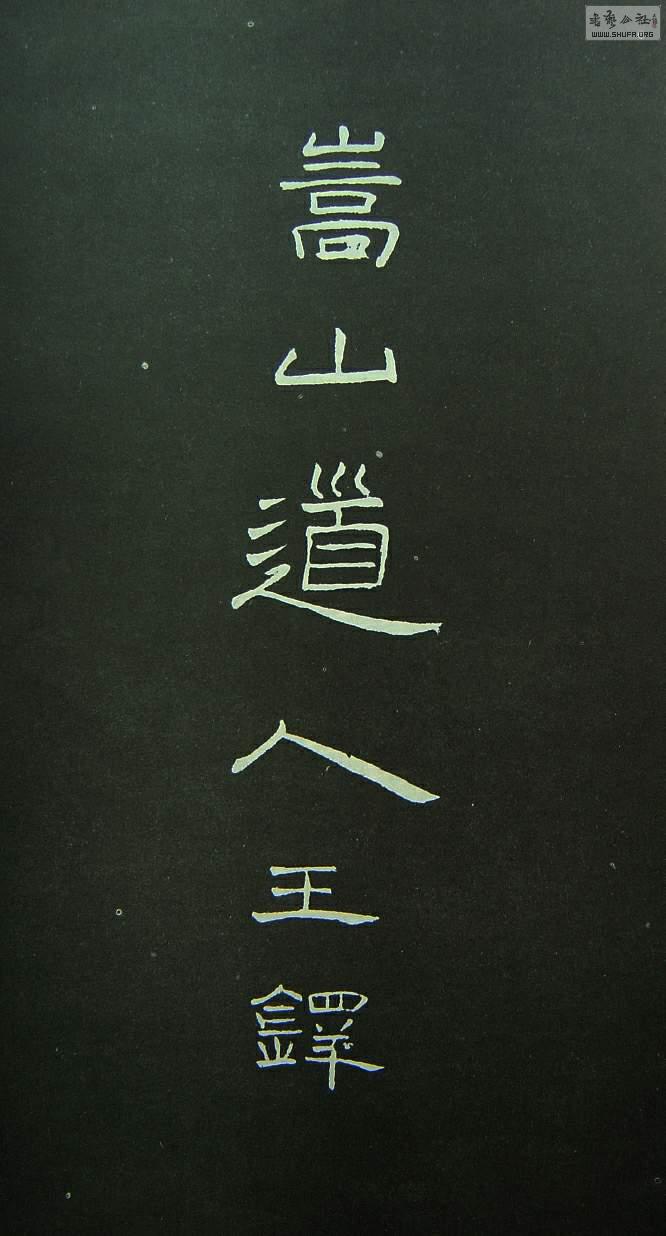 嵩山道人王鐸
书艺公社
WWW.SHUFA.ORG